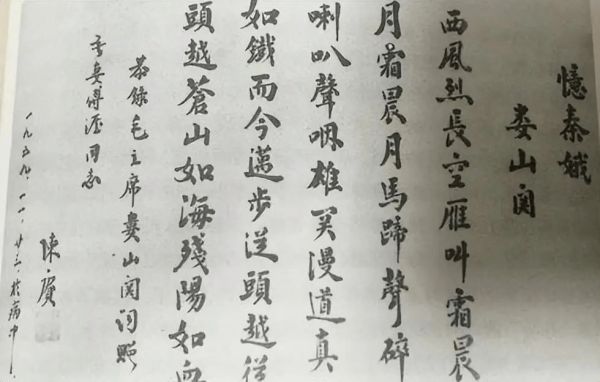 憶秦娥
娄山関
西風烈長空雁叫霜晨
月霜晨月馬蹄聲碎
喇叭聲咽雄関漫道真
如鐵而今邁步從頭越從
頭越蒼山如海殘陽如血
恭錄毛主席婁山関詞贈
同志
陳賡
一九五九.一一.廿三.於病中